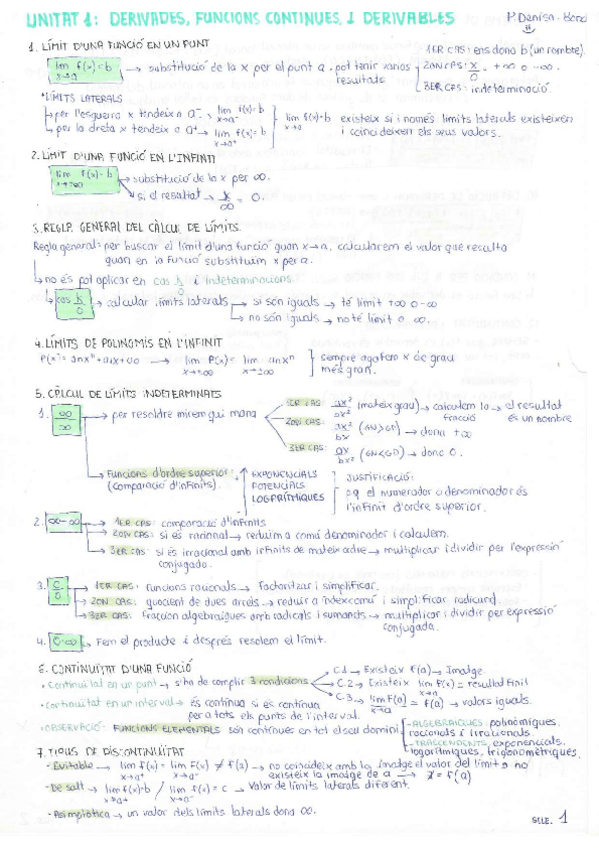 UNITAT 1: DERIVADES, FUNCIONS CONTÍNUES, I DERIVABLES
1. LÍMIT D'UNA FUNCIÓ EN UN PUNT
lim f(x)=b
x→a
→ substitució de la x per el punt a. pot tenir varios resultats
1ER CAS: ens dona b (un nombre).
2ON CAS: x/0 = +∞ o -∞.
3ER CAS: indeterminació.
*LÍMITS LATERALS
→ per l'esquerra x tendeix a a⁻ → lim f(x)=b
x→a⁻
→ per la dreta x tendeix a a⁺ → lim f(x)=b
x→a⁺
lim f(x)=b existeix si i només límits laterals existeixen
i coincideixen els seus valors.
2. LÍMIT D'UNA FUNCIÓ EN L'INFINIT
lim f(x)=b
→ substitució de la x per ∞.
→ si el resultat → k/∞ = 0.
3. REGLA GENERAL DEL CÀLCUL DE LÍMITS.
Regla general: per buscar el límit d'una funció quan x→a, calcularem el valor que resulta
quan en la funció substituïm x per a.
→ no és pot aplicar en cas k/0 i indeterminacions.
→ cas k/0 → calcular límits laterals → si són iguals → té límit +∞ o -∞
→ no són iguals → no té límit o ∞.
4. LÍMITS DE POLINOMIS EN L'INFINIT
lim P(x) = lim anxⁿ
x→±∞ x→±∞
sempre agafem x de grau
més gran.
5. CÀLCUL DE LÍMITS INDETERMINATS
1. ∞/∞ → per resoldre mirem qui mana
1ER CAS: ax²/ax² (mateix grau) → calculem la fracció → el resultat és un nombre
2ON CAS: ax²/bx (GN>GD) → dona +∞
3ER CAS: ax/bx² (GN<GD) → dona 0.
→ Funcions d'ordre superior: (comparació d'infinits).
EXPONENCIALS
POTENCIALS
LOGARÍTMIQUES
JUSTIFICACIÓ:
pq el numerador o denominador és
l'infinit d'ordre superior.
2. ∞-∞ → 1ER CAS: comparació d'infinits
→ 2ON CAS: si és racional → reduïm a comú denominador i calculem.
→ 3ER CAS: si és irracional amb infinits de mateix ordre → multiplicar i dividir per l'expressió
conjugada.
3. 0/0 → 1ER CAS: funcions racionals → factoritzar i simplificar.
→ 2ON CAS: quocient de dues arrels → reduir a índex comú i simplificar radicand.
→ 3ER CAS: fraccion algebraiques amb radicals i sumands → multiplicar i dividir per expressió
conjugada.
4. 0·∞ → Fem el producte i després resolem el límit.
6. CONTINUÏTAT D'UNA FUNCIÓ
• Continuïtat en un punt → s'ha de complir 3 condicions
C.1 → Existeix f(a) → Imatge.
C.2 → Existeix lim f(x) = resultat finit
x→a
C.3 → lim f(x) = f(a) → valors iguals.
x→a
• Continuïtat en un interval → és contínua si és contínua
per a tots els punts de l'interval.
• OBSERVACIÓ: FUNCIONS ELEMENTALS són contínues en tot el seu domini
- ALGEBRAIQUES: polinòmiques,
racionals i irracionals.
- TRASCENDENTS: exponencials,
logarítmiques, trigonomètriques.
7. TIPUS DE DISCONTINUÏTAT
- Evitable → lim f(x) = lim f(x) ≠ f(a) → no coincideix amb la imatge el valor del límit o no
x→a⁺ x→a⁻
existeix la imatge de a
- De salt → lim f(x)=b / lim f(x) = c → Valor de límits laterals diferent.
x→a⁺ x→a⁻
- Asimptòtica → un valor dels límits laterals dona ∞.
1